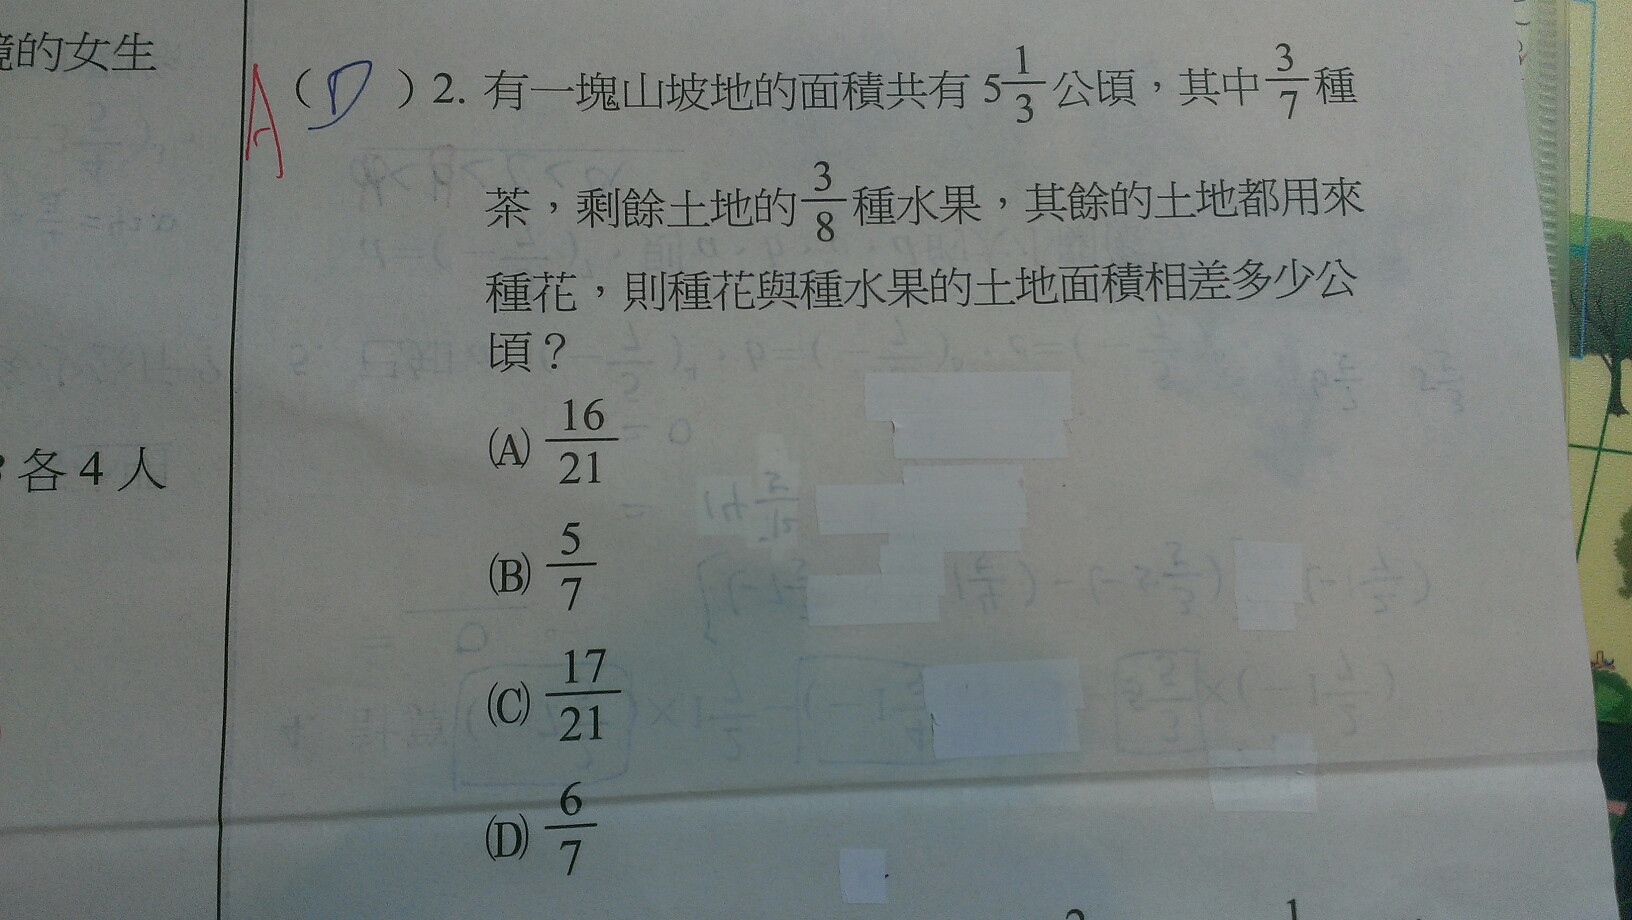 境的女生
各4人
A(D)2. 有一塊山坡地的面積共有5 1/3公頃，其中3/7種
茶，剩餘土地的3/8種水果，其餘的土地都用來
種花，則種花與種水果的土地面積相差多少公
頃？
(A) 16/21
(B) 5/7
(C) 17/21
(D) 6/7